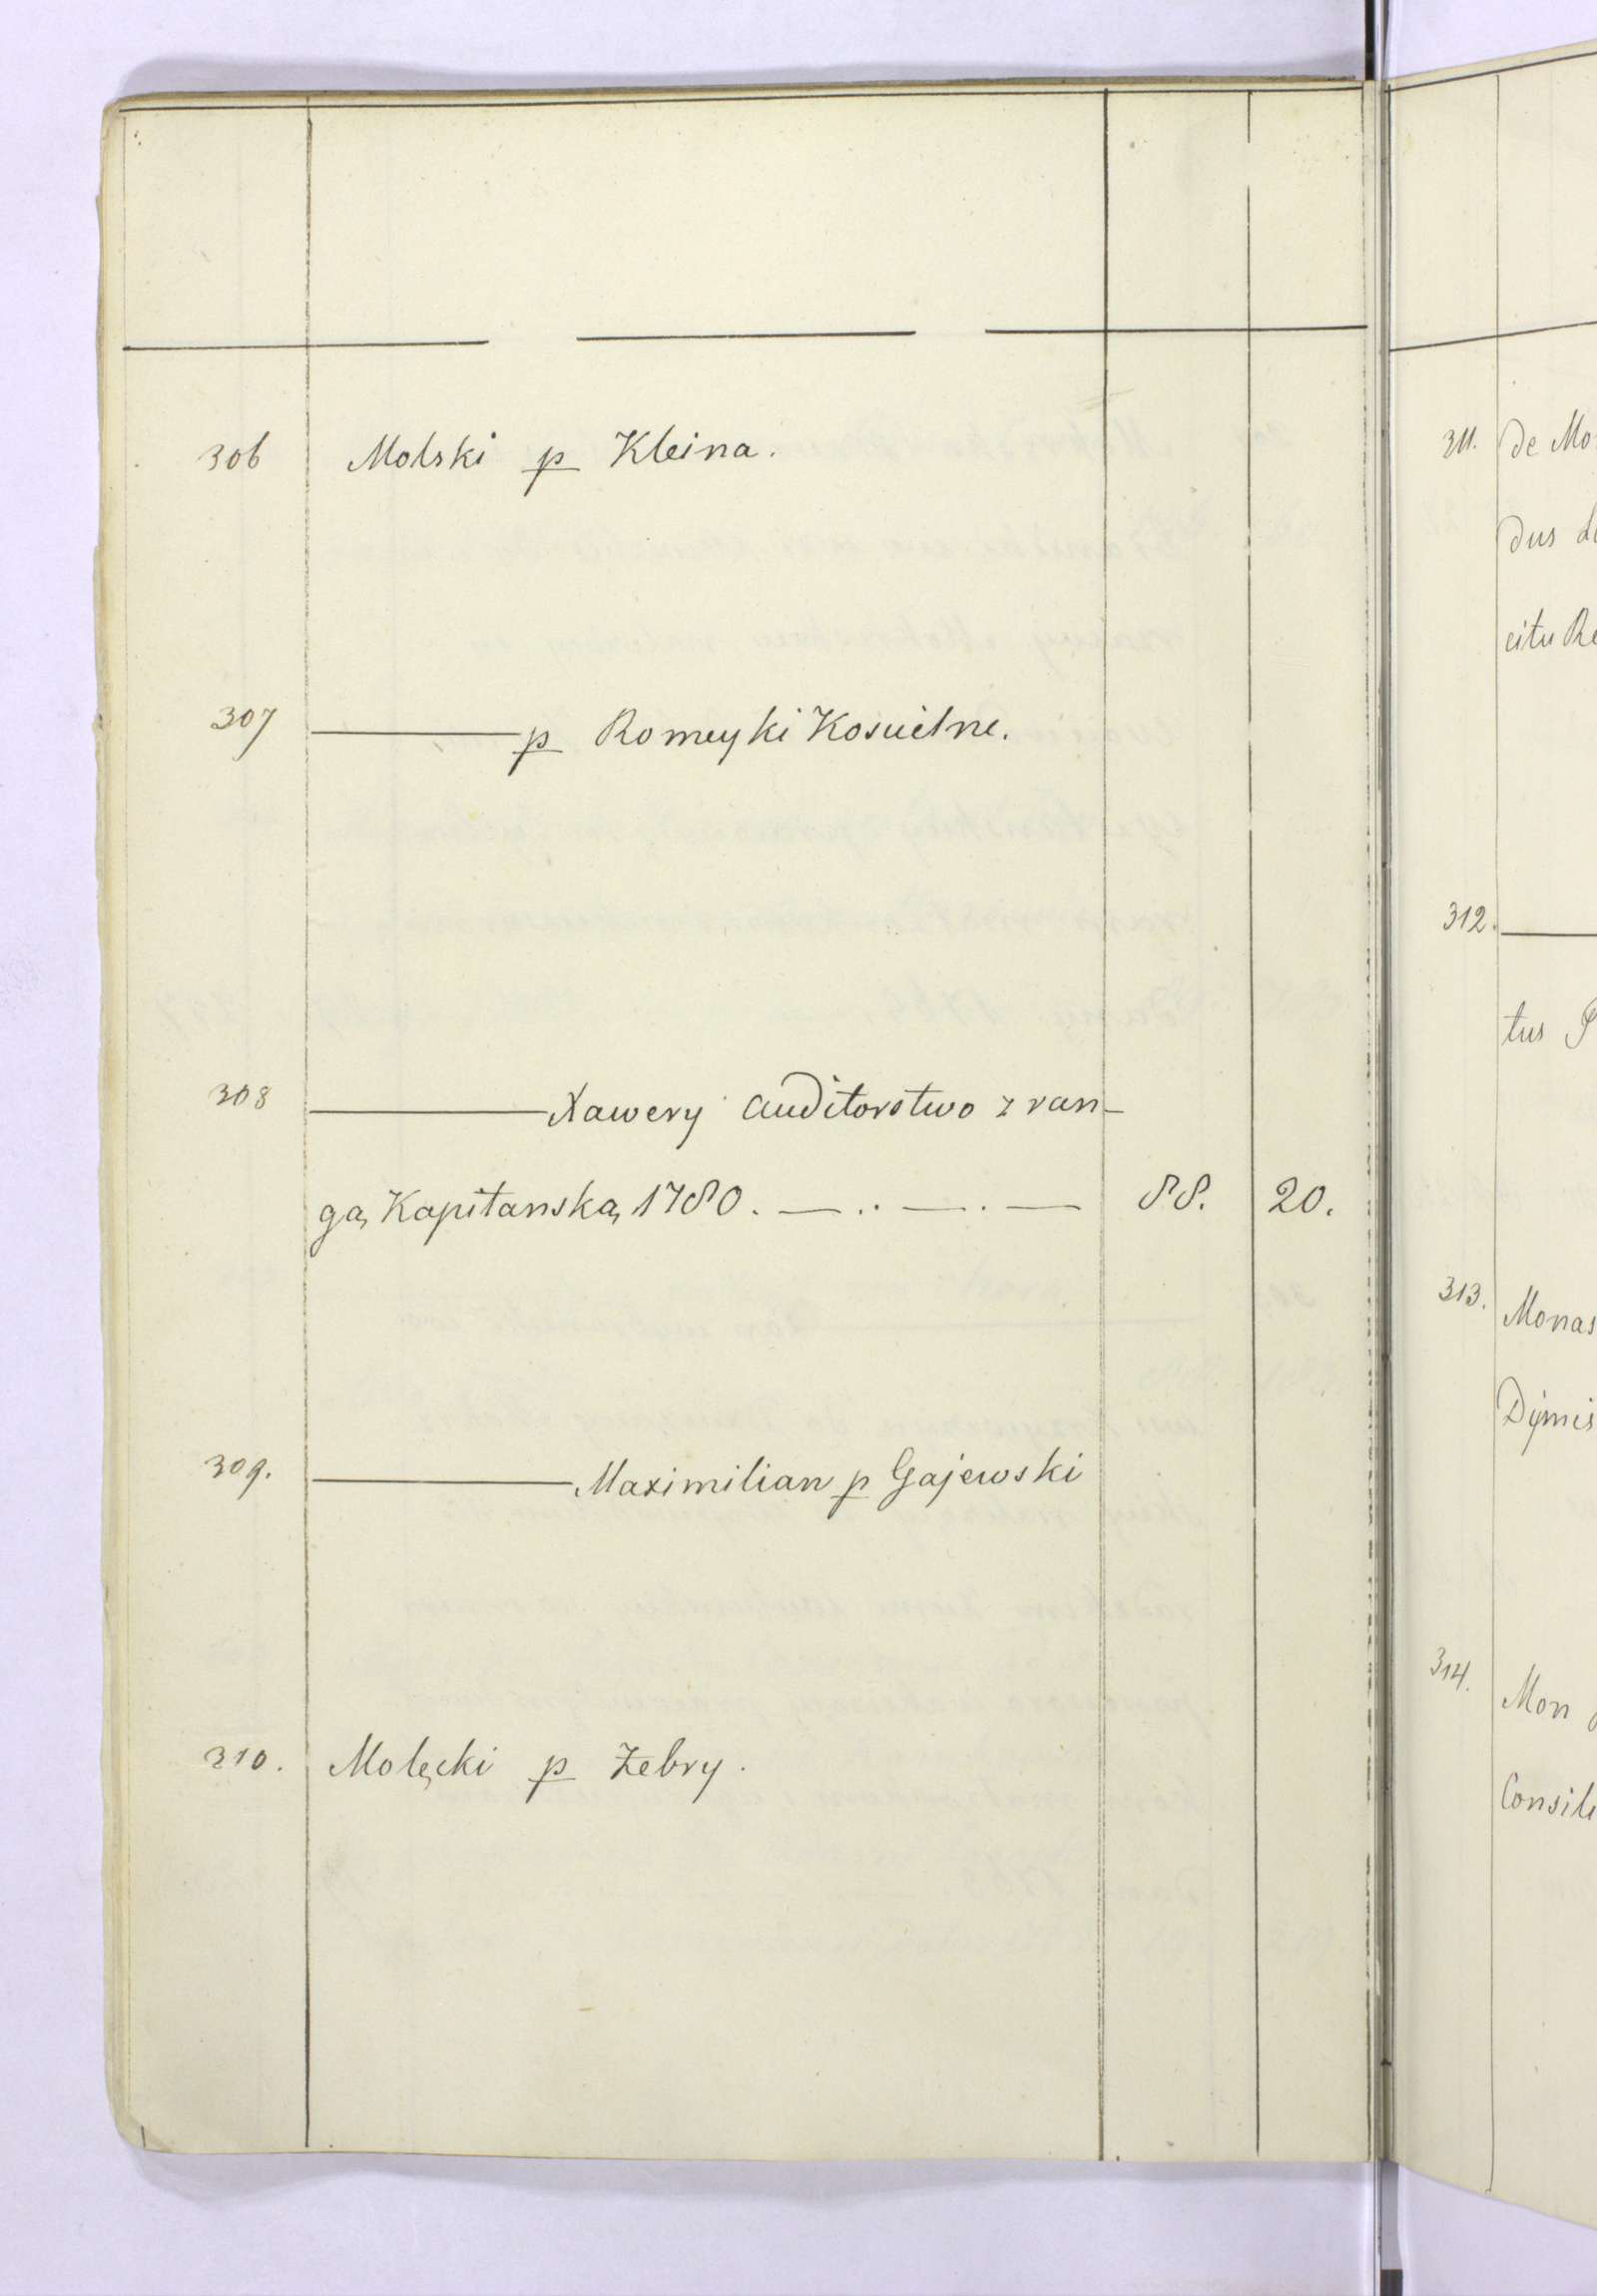 306 Molski p Kleina.
307 ——— p Romeyki Kościelne.
308 ——— Xawery auditorstwo z ran-
gą Kapitanską 1780. — .. — . — 88. 20.
309. ——— Maximilian p Gajewski
310. Molęcki p Zebry.
311. de Mo
dus
eitu Re
312. ———
tus P
313. Monas
Dymis
314. Mon
Consili